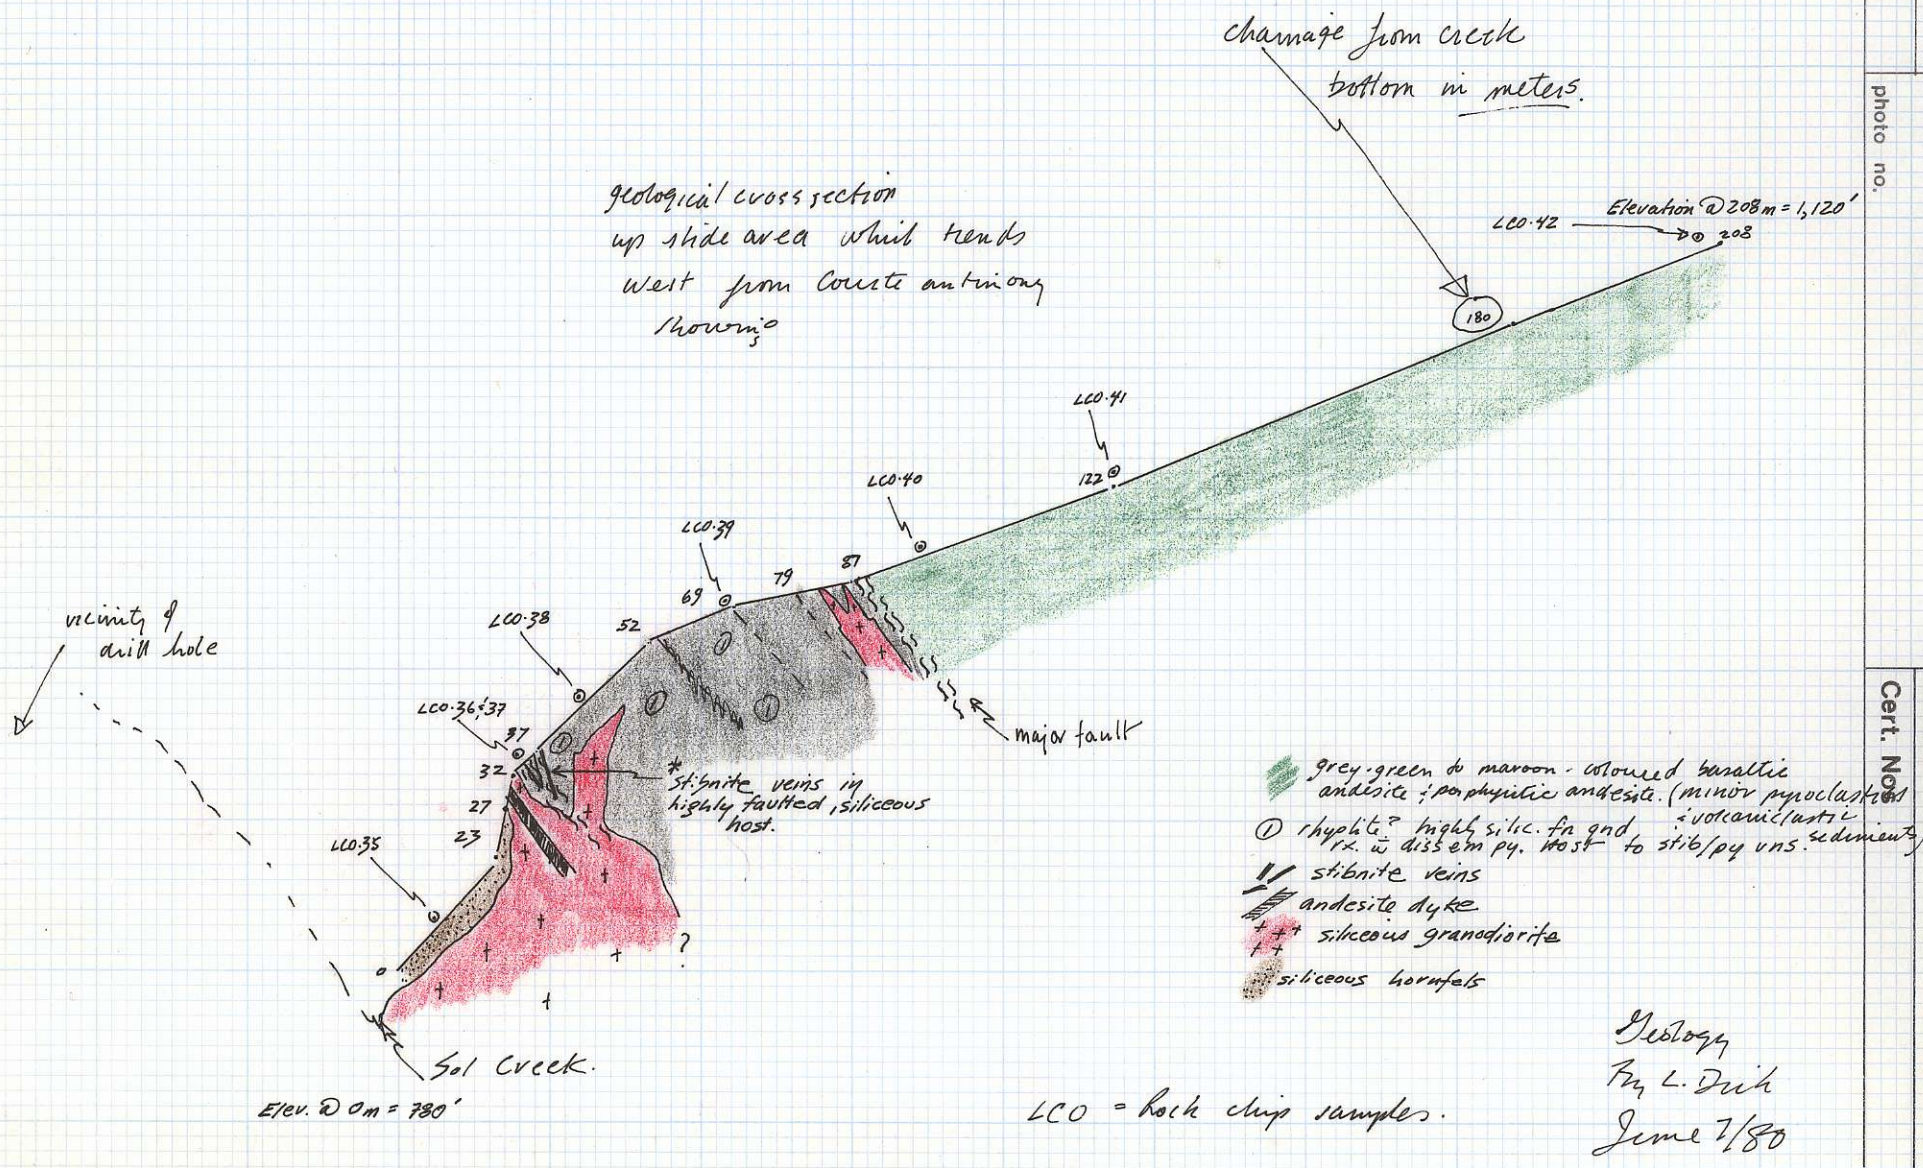 chainage from creek
bottom in meters.
photo no.
geological cross section
up slide area which trends
west from Courte antimony
showing
Elevation @ 208m = 1,120'
LCO·42
208
180
LCO·41
122
LCO·40
LCO·39
87
79
69
LCO·38
52
vicinity of
drill hole
LCO·36 & 37
37
32
27
23
major fault
*
stibnite veins in
highly faulted, siliceous
host.
LCO·35
0
?
Cert. Nos.
grey-green to maroon-coloured basaltic
andesite & porphyritic andesite. (minor pyroclastics
& volcaniclastic
sediments)
① rhyolite? highly silic. fn gnd
rx. w dissem py. Host to stib/py vns.
stibnite veins
andesite dyke
siliceous granodiorite
siliceous hornfels
Sol Creek.
Elev. @ 0m = 780'
LCO = Rock chip samples.
Geology
By L. Dick
June 7/80